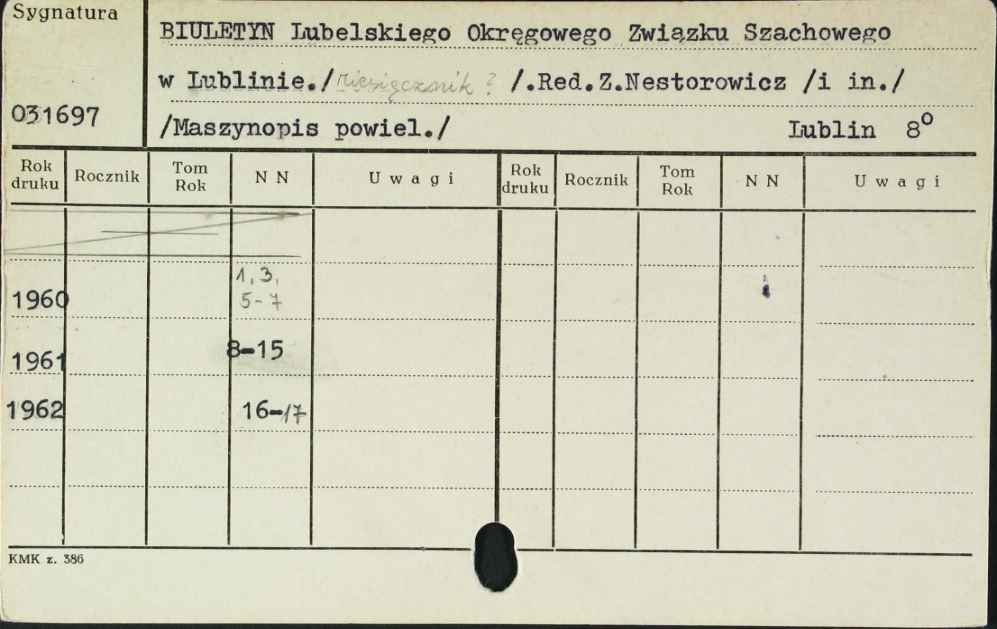 Sygnatura
BIULETYN Lubelskiego Okręgowego Związku Szachowego
w Lublinie./miesięcznik ?/.Red.Z.Nestorowicz /i in./
031697
/Maszynopis powiel./ Lublin 8°
Rok druku Rocznik Tom Rok N N Uwagi Rok druku Rocznik Tom Rok N N Uwagi
1960 1, 3, 5-7
1961 8-15
1962 16-17
KMK z. 386